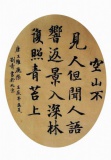 空山不
見人但聞人語
響返景入深林
復照青苔上
唐王維